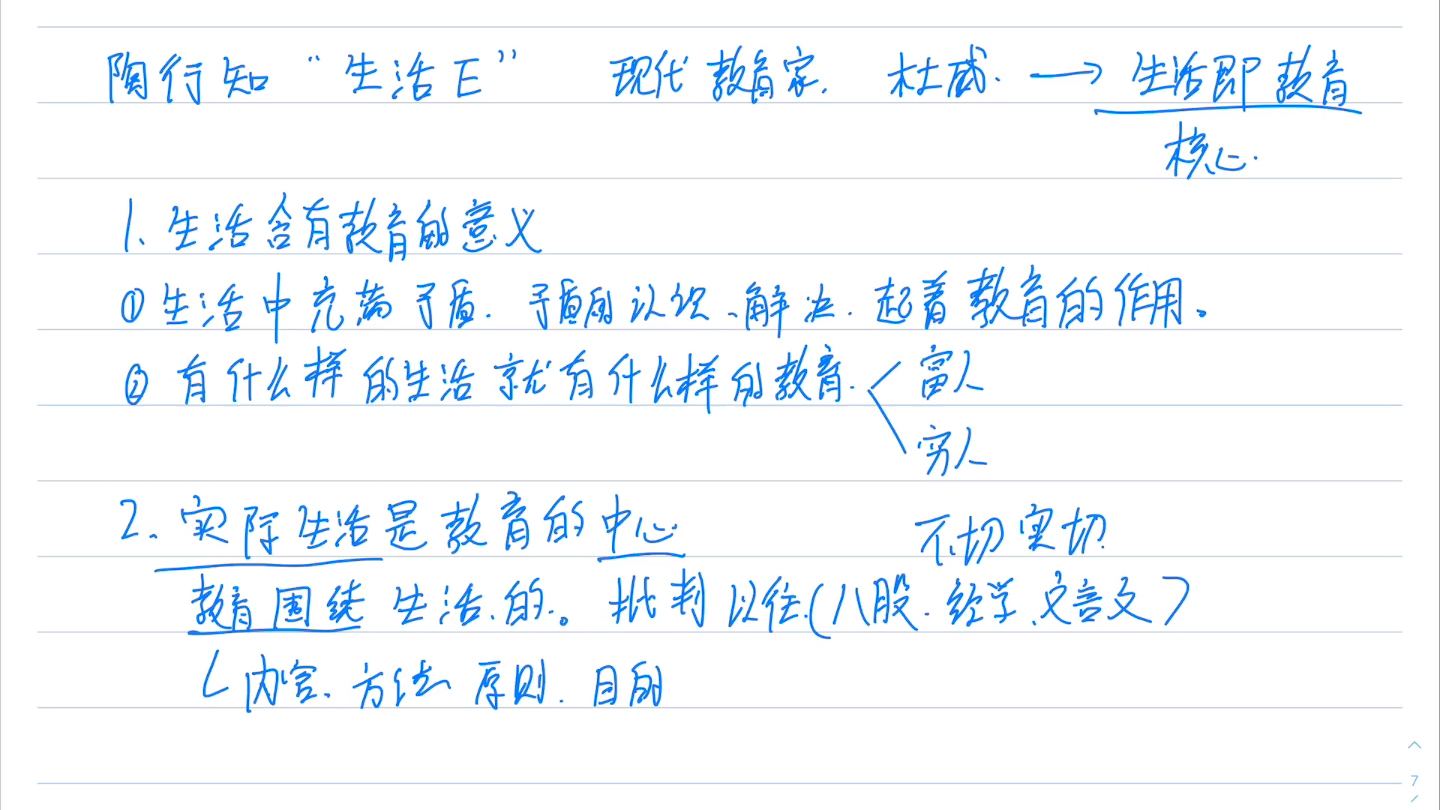 陶行知“生活E” 现代教育家. 杜威. → 生活即教育
核心.
1、生活含有教育的意义
①生活中充满矛盾. 矛盾的认识、解决. 起着教育的作用。
② 有什么样的生活就有什么样的教育. 富人
穷人
2、实际生活是教育的中心 不切实切.
教育围绕生活的。批判以往.(八股. 经学、文言文)
内容、方法 原则. 目的
7